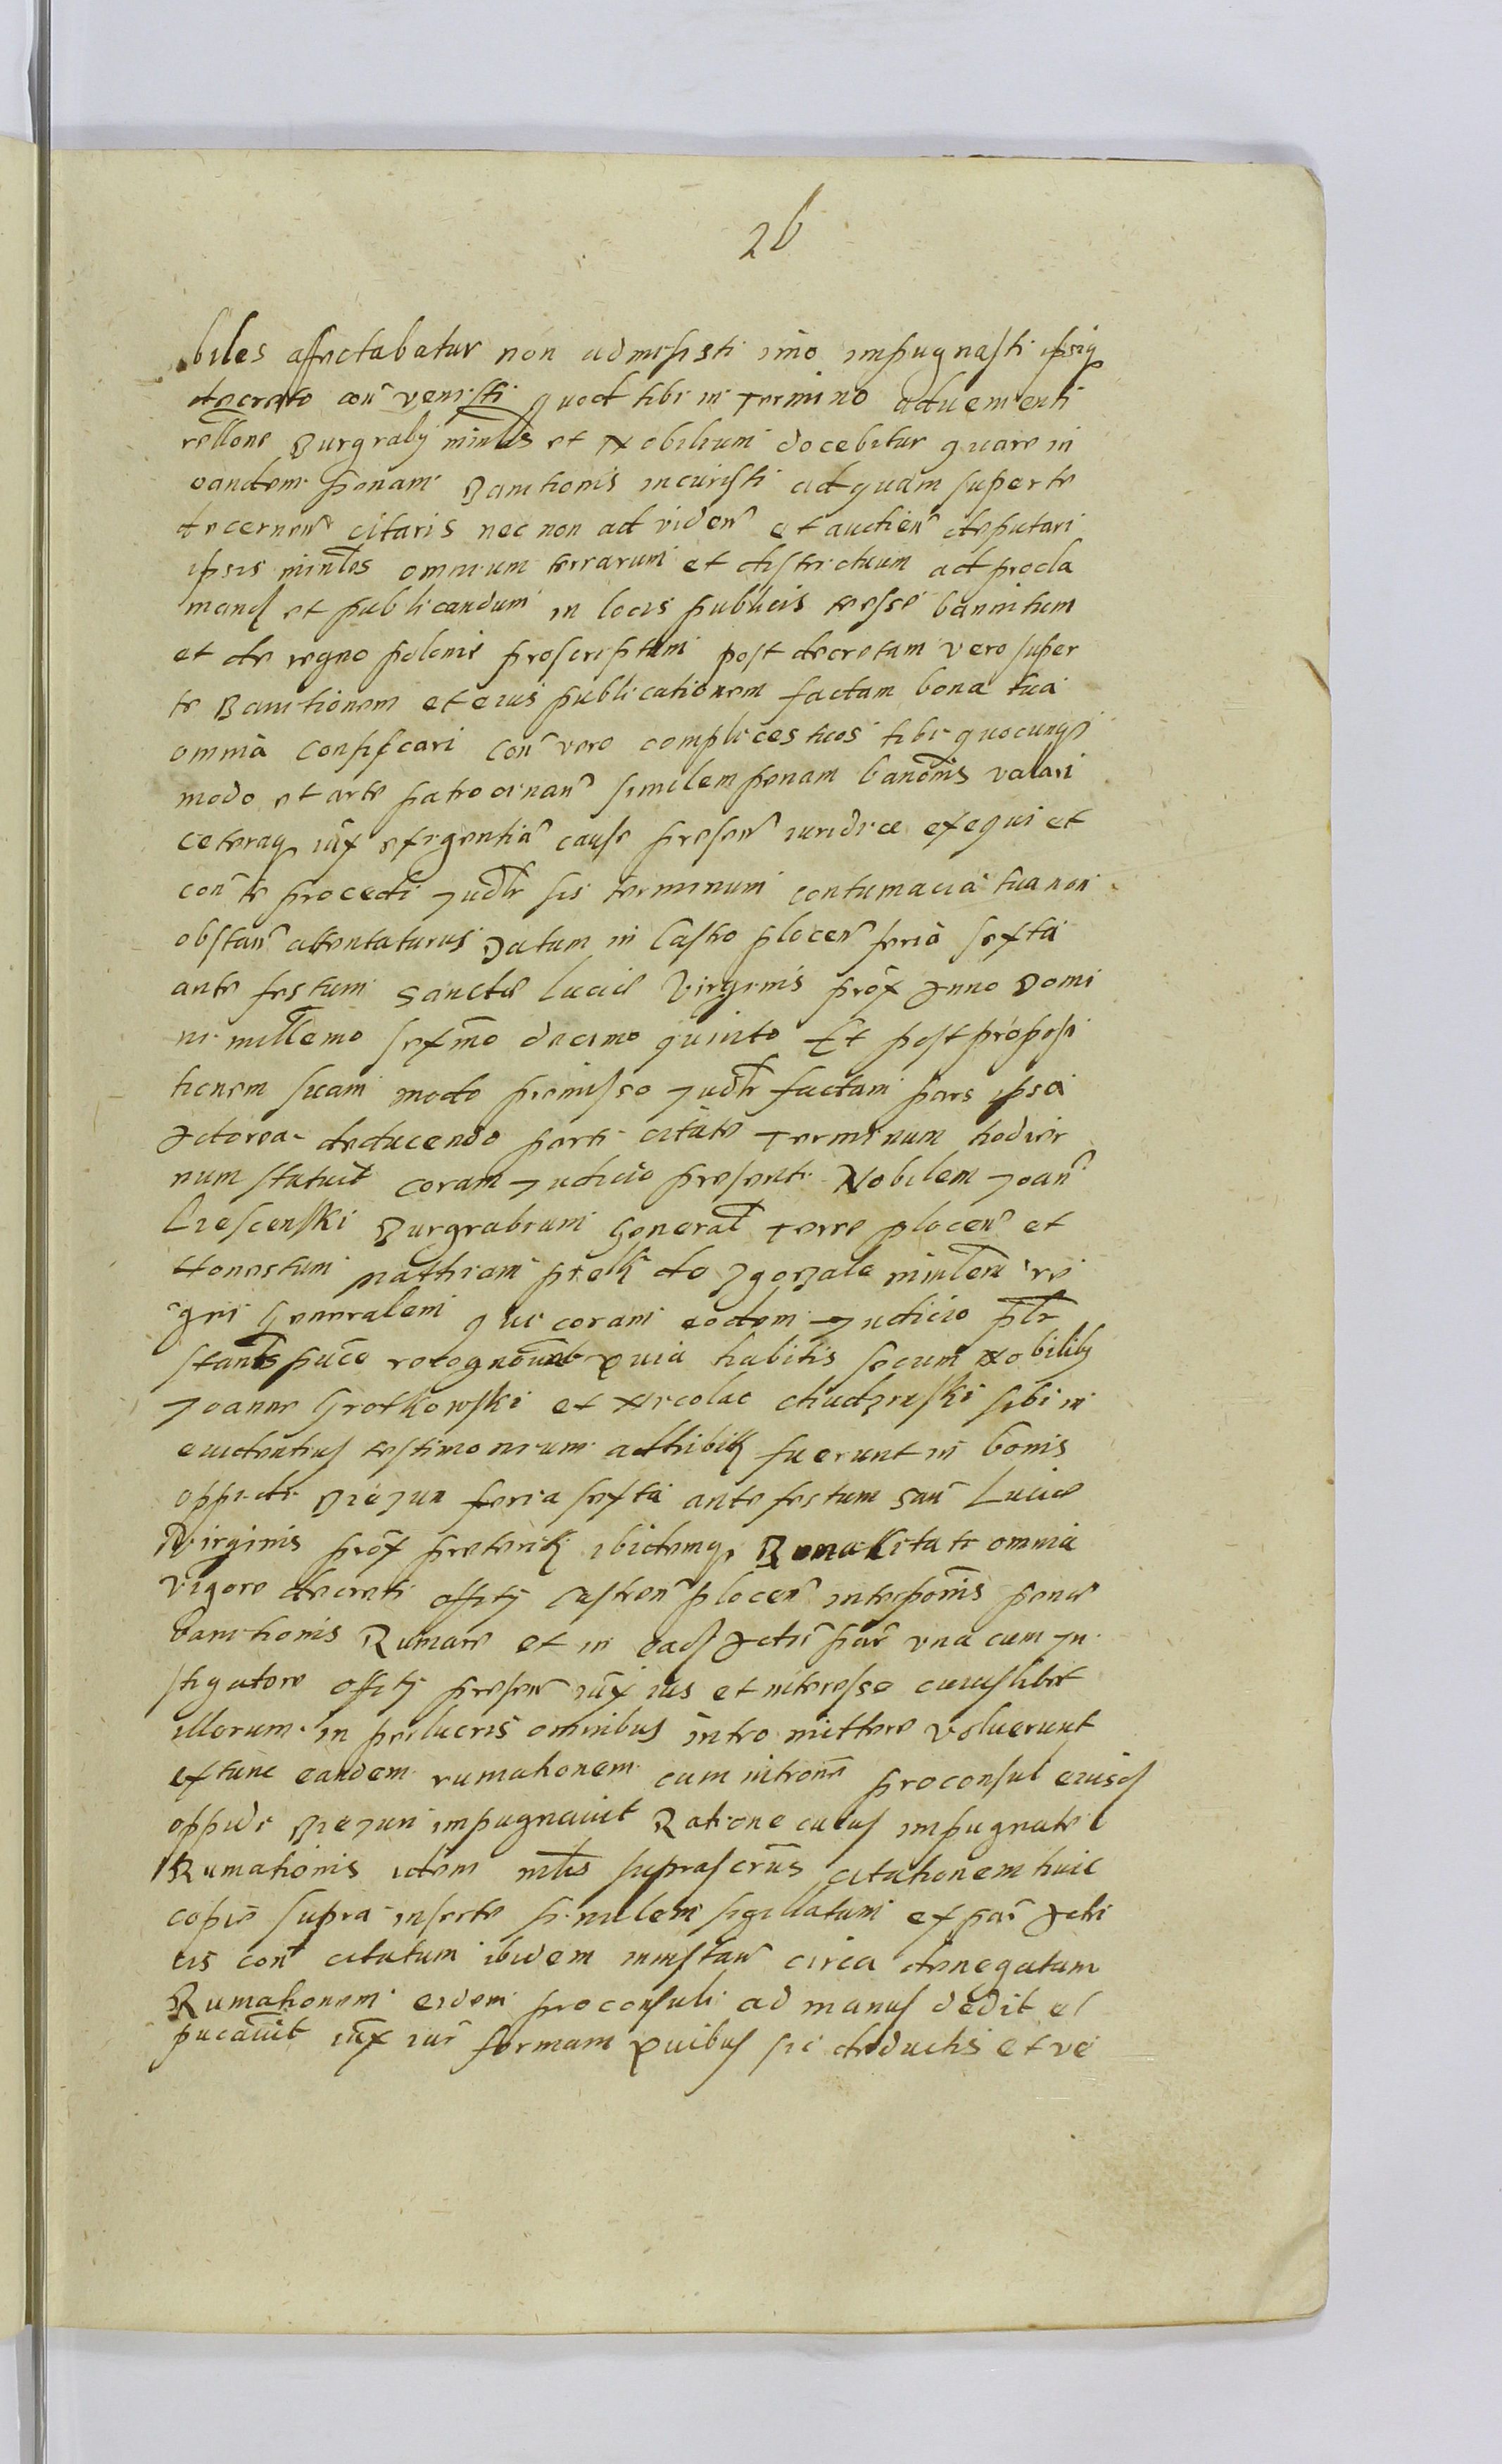 26
biles affectabatur non admisisti imo impugnasti ipsiq
decreto con venisti quod tibi in termino advenienti
rellone Burgraby minlis et Nobilium docebitur quare in
eandem penam Banitionis incuristi ad quam super te
decernen citaris nec non ad viden et audien deputari
ipsis minles omnium terrarum et districtuum ad procla
mand et publicandum in locis publicis te esse bannitum
et de regno polonie proscriptum post decretam vero super
te Banitionem et eius publicationem factam bona tua
omnia confiscari con vero complices tuos tibi quocunq
modo et arte patrocinan similem penam banonis valari
ceteraq iux exigentia cause presen iuridice exequi et
con te procedi Judlr sis terminum contumacia tua non
obstan attentaturus Datum in Castro plocen feria sexta
ante festum Sanctae Luciae Virginis prox Anno Domi
ni millemo sexmo decimo quinto Et post proposi
tionem suam modo premisso Judlr factam pars ipsa
Actorea deducendo parti citate Terminum hodier
num statuit coram Judicio presenti Nobilem Joan
Ciescenski Burgrabium General Terre plocen et
Honestum Mathiam de Zgorzale minlem re
gni Generalem qui coram eodem Judicio plr
stantes puco recognount Quia habitis secum Nobiliby
Joanne Grotkowski et Nicolao Chudzinski sibi in
euidentius testimonium adhibit fuerunt in bonis
oppidi Biezun feria sexta ante festum San Luciae
Virginis prox preterit ibidemq omnia
vigore decreti offity Castren plocen interponis penae
banitionis Rumare et in ead Actis par una cum In
stigatore offity presen iux ius et interesse cuiuslibet
illorum in prilucris omnibus intro mittere voluerunt
extunc eandem rumationem cum introne proconsul eiusd
oppidi Biezun impugnavit Ratione cuius impugnate
Rumationis idem mlis suprascrius citationem huic
copie supra inserte similem sigillatam ex par Acti
cis con citatum ibidem circa denegatam
Rumationem eidem proconsuli ad manus dedit et
pucavit iux iur formam Quibus sic deductis et ve